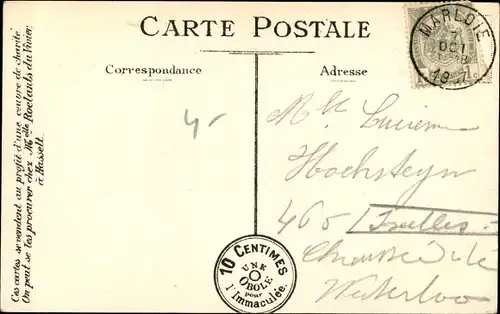 CARTE POSTALE
Correspondance
Adresse
MARLOIE
7
OCT
Ces cartes se vendent au profit d'une œuvre de charité
On peut se les procurer chez Melle Roelants du Vivier,
à Hasselt.
10 CENTIMES
UNE
OBOLE
pour
l'Immaculée.
Lucien
Hochsteyn
465 Ixelles
Chaussée de
Waterloo